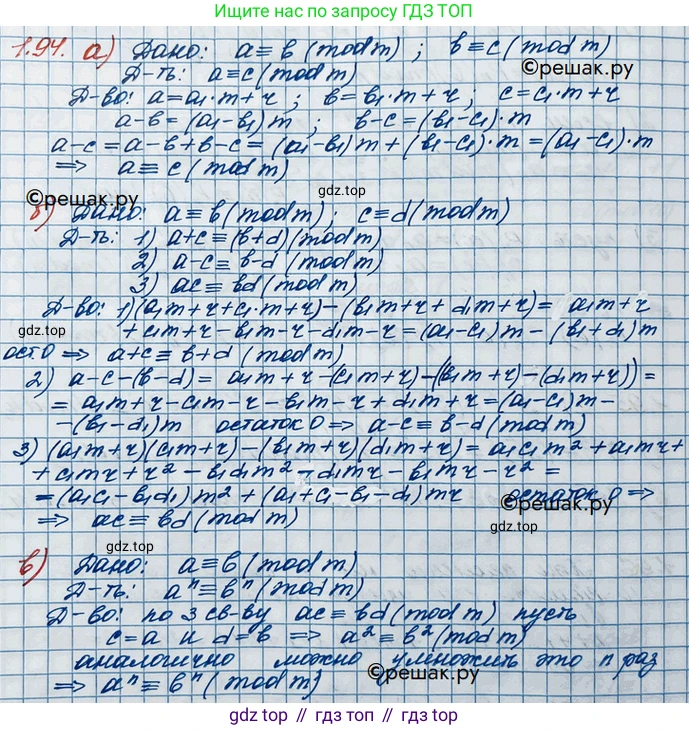 Ищите нас по запросу ГДЗ ТОП
1.94. а) Дано: a≡b (mod m) ; b≡c (mod m)
©reшак.ру
Д-ть: a≡c (mod m)
Д-во: a=a₁·m+r ; b=b₁·m+r ; c=c₁·m+r
a-b=(a₁-b₁)m ; b-c=(b₁-c₁)·m
a-c=a-b+b-c=(a₁-b₁)m+(b₁-c₁)·m=(a₁-c₁)·m
⇒ a≡c (mod m)
©reшак.ру
gdz.top
б) Дано: a≡b (mod m); c≡d (mod m)
Д-ть: 1) a+c≡(b+d)(mod m)
2) a-c≡b-d (mod m)
3) ac≡bd (mod m)
Д-во: 1)(a₁m+r+c₁·m+r)-(b₁m+r+d₁m+r)= a₁m+r
gdz.top
+c₁m+r-b₁m-r-d₁m-r=(a₁-c₁)m-(b₁+d₁)m
ост.0 ⇒ a+c≡b+d (mod m)
2) a-c-(b-d)= a₁m+r-(c₁m+r)-(b₁m+r)-(d₁m+r))=
= a₁m+r-c₁m-r-b₁m-r+d₁m+r=(a₁-c₁)m-
-(b₁-d₁)m остаток 0 ⇒ a-c≡b-d (mod m)
3) (a₁m+r)(c₁m+r)-(b₁m+r)(d₁m+r)=a₁c₁m²+a₁mr+
+c₁mr+r²-b₁d₁m²-d₁mr-b₁mr-r²=
=(a₁c₁-b₁d₁)m²+(a₁+c₁-b₁-d₁)mr остаток 0 ⇒
©reшак.ру
⇒ ac≡bd (mod m)
gdz.top
в) Дано: a≡b (mod m)
Д-ть: aⁿ≡bⁿ (mod m)
Д-во: по 3 св-ву ac≡bd (mod m) пусть
c=a и d=b ⇒ a²≡b² (mod m)
gdz.top
аналогично можно умножить это n раз
⇒ aⁿ≡bⁿ (mod m)
©reшак.ру
gdz.top | гдз.топ | gdz.top